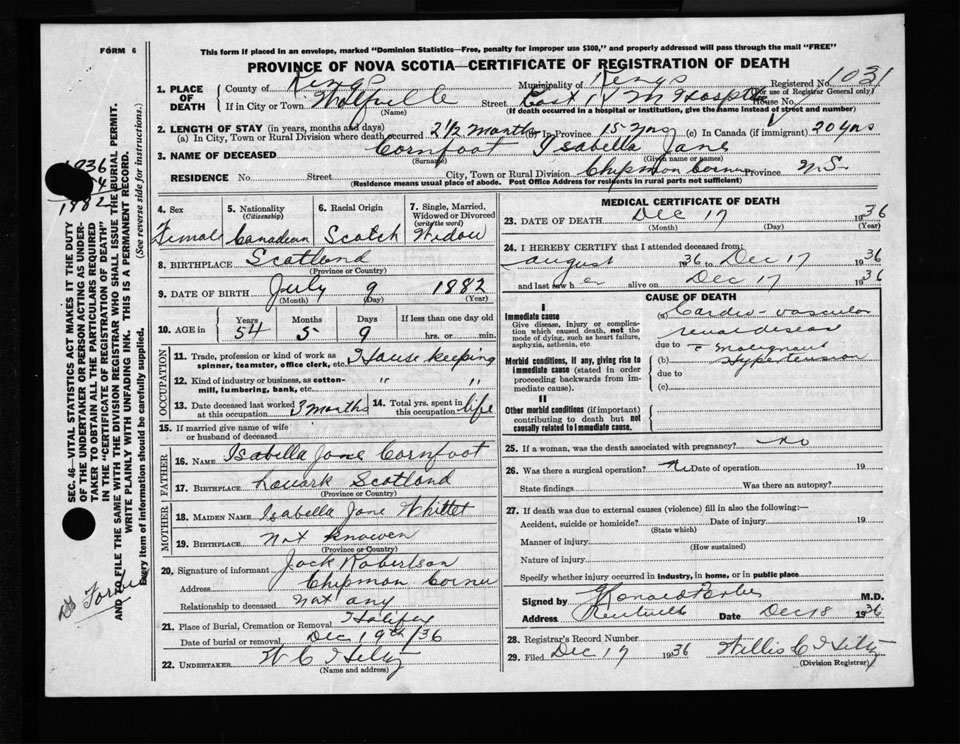 FORM 6
This form if placed in an envelope, marked "Dominion Statistics—Free, penalty for improper use $300," and properly addressed will pass through the mail "FREE"
PROVINCE OF NOVA SCOTIA—CERTIFICATE OF REGISTRATION OF DEATH
1. PLACE OF DEATH County of Kings Municipality of Kings Registered No. 1031
(For use of Registrar General only)
If in City or Town Wolfville Street House No.
(Name) (If death occurred in a hospital or institution, give the name instead of street and number)
2. LENGTH OF STAY (in years, months and days)
(a) In City, Town or Rural Division where death occurred 2 1/2 months In Province 15 yrs (c) In Canada (if immigrant) 20 yrs
3. NAME OF DECEASED Cornfoot Isabella Jane
(Surname) (Given name or names)
RESIDENCE No. Street City, Town or Rural Division Chipman Corner Province N.S.
(Residence means usual place of abode. Post Office Address for residents in rural parts not sufficient)
4. Sex Female
5. Nationality (Citizenship) Canadian
6. Racial Origin Scotch
7. Single, Married, Widowed or Divorced (write the word) Widow
8. BIRTHPLACE Scotland
(Province or Country)
9. DATE OF BIRTH July 9 1882
(Month) (Day) (Year)
10. AGE in Years 54 Months 5 Days 9 If less than one day old hrs. or min.
OCCUPATION
11. Trade, profession or kind of work as spinner, teamster, office clerk, etc. House keeping
12. Kind of industry or business, as cotton-mill, lumbering, bank, etc. " "
13. Date deceased last worked at this occupation 3 months
14. Total yrs. spent in this occupation life
15. If married give name of wife or husband of deceased
FATHER
16. NAME Isabella Jane Cornfoot
17. BIRTHPLACE Lanark Scotland
(Province or Country)
MOTHER
18. MAIDEN NAME Isabella Jane Whittet
19. BIRTHPLACE Not knowen
(Province or Country)
20. Signature of informant Jack Robertson
Address Chipman Corner
Relationship to deceased not any
21. Place of Burial, Cremation or Removal Halifax
Date of burial or removal Dec 19th/36
22. UNDERTAKER
(Name and address)
MEDICAL CERTIFICATE OF DEATH
23. DATE OF DEATH Dec 17 1936
(Month) (Day) (Year)
24. I HEREBY CERTIFY that I attended deceased from:
August 1936 to Dec 17 1936
and last saw her alive on Dec 17 1936
CAUSE OF DEATH
I
Immediate cause
Give disease, injury or complication which caused death, not the mode of dying, such as heart failure, asphyxia, asthenia, etc.
(a) Cardio-vascular
renal disease
due to c malignant
Morbid conditions, if any, giving rise to immediate cause (stated in order proceeding backwards from immediate cause).
(b) Hypertension
due to
(c)
II
Other morbid conditions (if important) contributing to death but not causally related to immediate cause.
25. If a woman, was the death associated with pregnancy? no
26. Was there a surgical operation? No Date of operation 19
State findings Was there an autopsy?
27. If death was due to external causes (violence) fill in also the following:—
Accident, suicide or homicide? Date of injury 19
(State which)
Manner of injury
(How sustained)
Nature of injury
Specify whether injury occurred in industry, in home, or in public place
Signed by M.D.
Address Kentville Date Dec 18 1936
28. Registrar's Record Number
29. Filed Dec 17 1936
(Division Registrar)
SEC. 46—VITAL STATISTICS ACT MAKES IT THE DUTY
OF THE UNDERTAKER OR PERSON ACTING AS UNDERTAKER TO OBTAIN ALL THE PARTICULARS REQUIRED
IN THE "CERTIFICATE OF REGISTRATION OF DEATH"
AND TO FILE THE SAME WITH THE DIVISION REGISTRAR WHO SHALL ISSUE THE BURIAL PERMIT.
WRITE PLAINLY WITH UNFADING INK. THIS IS A PERMANENT RECORD.
Every item of information should be carefully supplied. (See reverse side for instructions.)
1936
54
1882